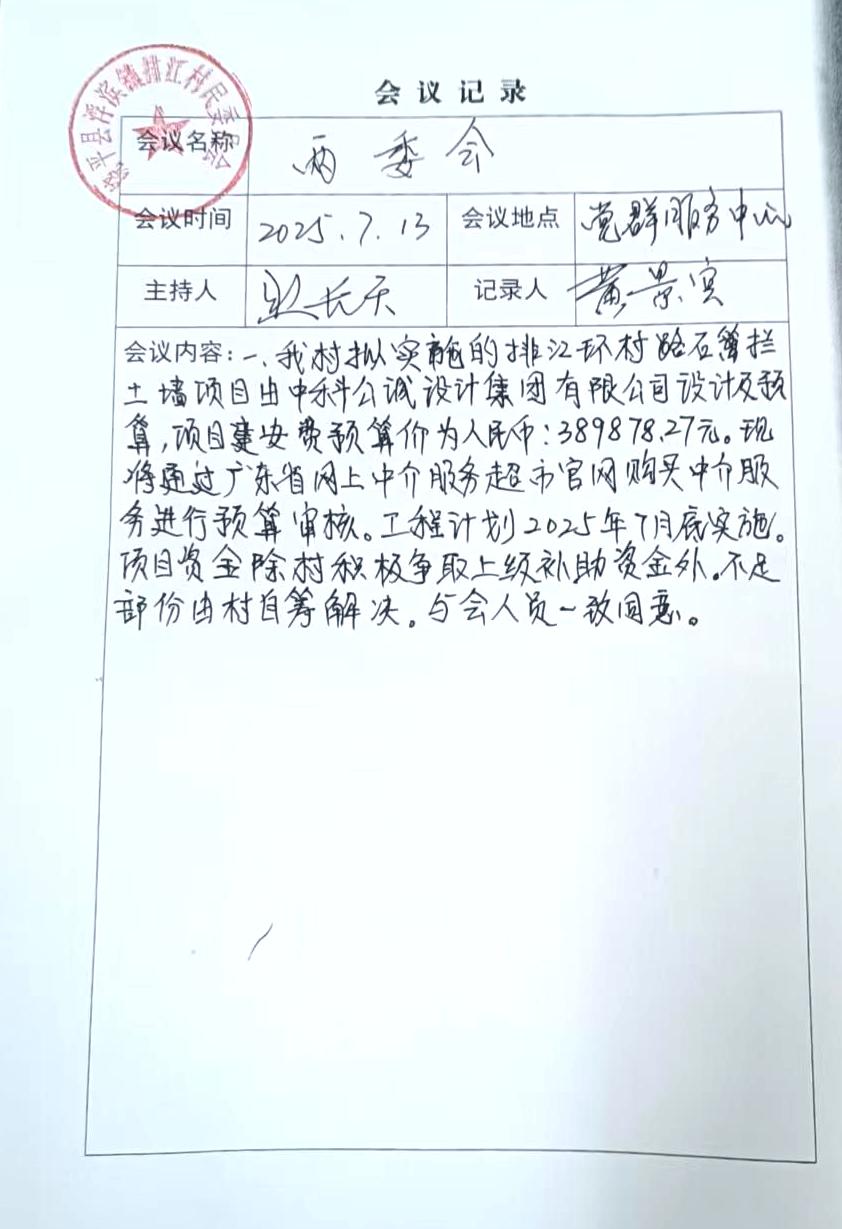 饶平县浮滨镇排江村民委员会
会议记录
会议名称 两委会
会议时间 2025.7.13 会议地点 党群服务中心
主持人 长天 记录人 黄景宾
会议内容：一、我村拟实施的排江环村路石篱拦
土墙项目由中科公诚设计集团有限公司设计及预
算,项目建安费预算价为人民币:389878.27元。现
将通过广东省网上中介服务超市官网购买中介服
务进行预算审核。工程计划2025年7月底实施。
项目资金除村积极争取上级补助资金外。不足
部份由村自筹解决。与会人员一致同意。